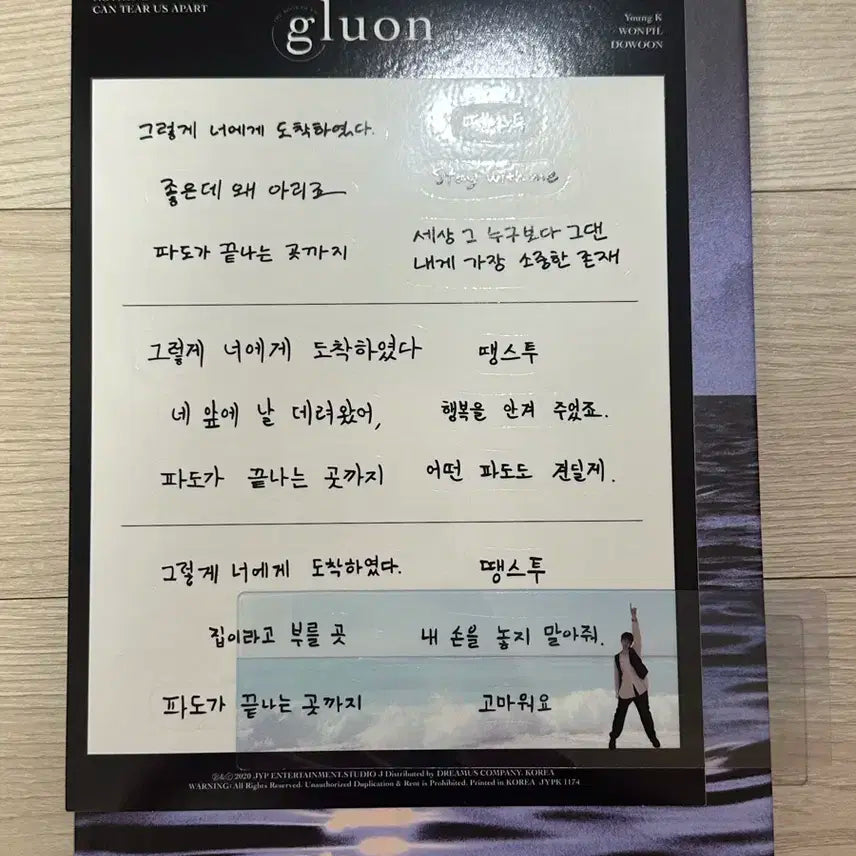 CAN TEAR US APART
gluon
Young K
WONPIL
DOWOON
그렇게 너에게 도착하였다.
좋은데 왜 아리죠
stay with me
파도가 끝나는 곳까지
세상 그 누구보다 그댄
내게 가장 소중한 존재
그렇게 너에게 도착하였다
땡스투
네 앞에 날 데려왔어,
행복을 안겨 주었죠.
파도가 끝나는 곳까지
어떤 파도도 견딜게.
그렇게 너에게 도착하였다.
땡스투
집이라고 부를 곳
내 손을 놓지 말아줘.
파도가 끝나는 곳까지
고마워요
Ⓟ&Ⓒ 2020 JYP ENTERTAINMENT.STUDIO J Distributed by DREAMUS COMPANY. KOREA
WARNING: All Rights Reserved. Unauthorized Duplication & Rent is Prohibited. Printed in KOREA JYPK 1174